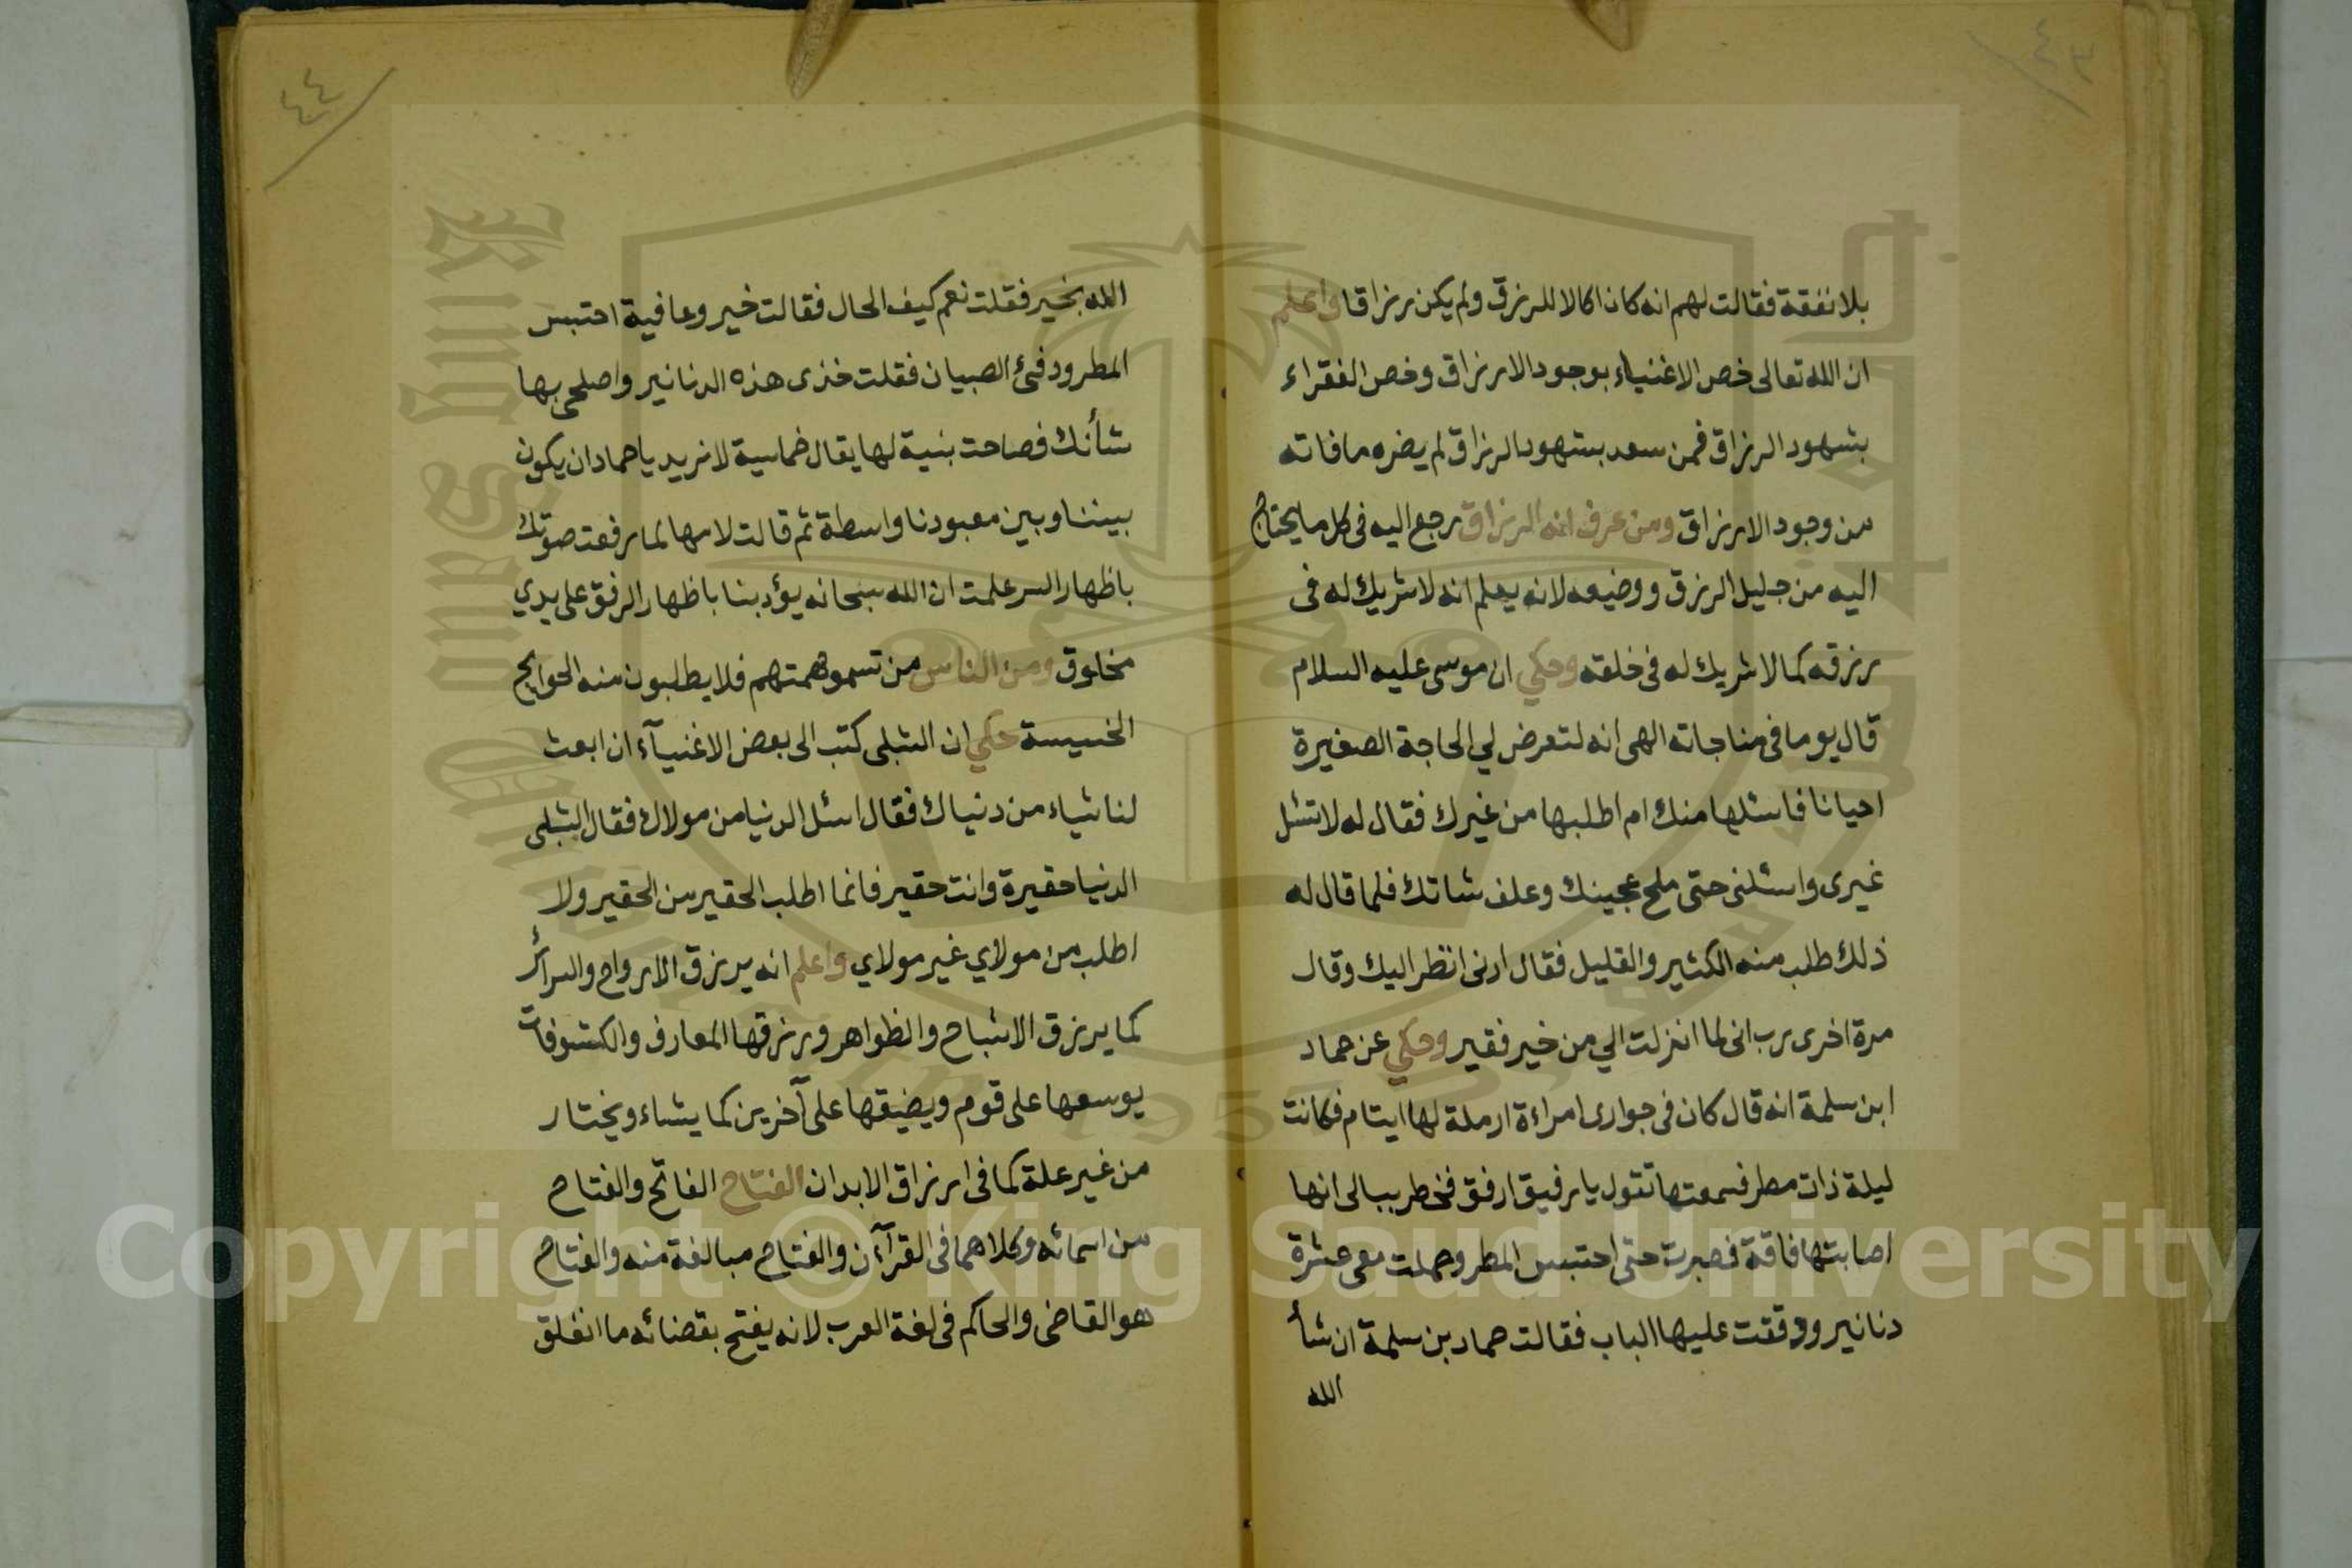 ٤٣
بلا نفقة فقالت لهم انه كان اكالا للرزق ولم يكن رزاقا واعلم
ان الله تعالى خص الاغنياء بوجود الارزاق وخص الفقراء
بشهود الرزاق فمن سعد بشهود الرزاق لم يضره ما فاته
من وجود الارزاق ومن عرف انه الرزاق رجع اليه فى كل ما يحتاج
اليه من جليل الرزق ووضيعه لانه يعلم انه لا شريك له فى
رزقه كما لا شريك له فى خلقه وحكي ان موسى عليه السلام
قال يوما فى مناجاته الهى انه لتعرض لي الحاجة الصغيرة
احيانا فاسئلها منك ام اطلبها من غيرك فقال له لا تسئل
غيرى واسئلنى حتى ملح عجينك وعلف شاتك فلما قال له
ذلك طلب منه الكثير والقليل فقال ارنى انظر اليك وقال
مرة اخرى رب انى لما انزلت الي من خير فقير وحكي عن حماد
ابن سلمة انه قال كان فى جوارى امراءة ارملة لها ايتام فكانت
ليلة ذات مطر فسمعتها تقول يا رفيق ارفق فخطر ببالى انها
اصابتها فاقة فصبرت حتى احتبس المطر وحملت معى عشرة
دنانير ووقفت عليها الباب فقالت حماد بن سلمة ان شأ
الله
٤٤
الله بخير فقلت نعم كيف الحال فقالت خير وعافية احتبس
المطر ودفئ الصبيان فقلت خذى هذه الدنانير واصلحى بها
شأنك فصاحت بنية لها يقال خماسية لا نريد يا حماد ان يكون
بيننا وبين معبودنا واسطة ثم قالت لامها لما رفعت صوتك
باظهار السر علمت ان الله سبحانه يؤدبنا باظهار الرفق على يدي
مخلوق ومن الناس من تسمو همتهم فلا يطلبون منه الحوايج
الخسيسة حكي ان الشبلى كتب الى بعض الاغنيآء ان ابعث
لنا شياء من دنياك فقال اسئل الدنيا من مولاك فقال الشبلى
الدنيا حقيرة وانت حقير فانما اطلب الحقير من الحقير ولا
اطلب من مولاي غير مولاي واعلم انه يرزق الارواح والسرائر
كما يرزق الاشباح والظواهر ورزقها المعارف والكشوفات
يوسعها على قوم ويضيقها على آخرين كما يشاء ويختار
من غير علة كما فى ارزاق الابدان الفتاح الفاتح والفتاح
من اسمائه وكلاهما فى القرآءن والفتاح مبالغة منه والفتاح
هو القاضى والحاكم فى لغة العرب لانه يفتح بقضائه ما انغلق
Copyright © King Saud University